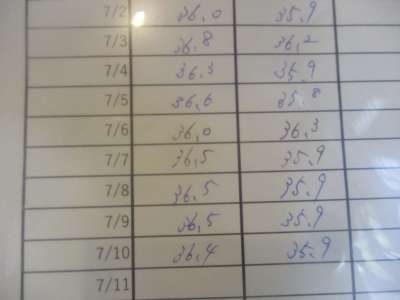 7/2 36.0 35.9
7/3 36.8 36.2
7/4 36.3 35.9
7/5 36.6 35.8
7/6 36.0 36.3
7/7 36.5 35.9
7/8 36.5 35.9
7/9 36.5 35.9
7/10 36.4 35.9
7/11